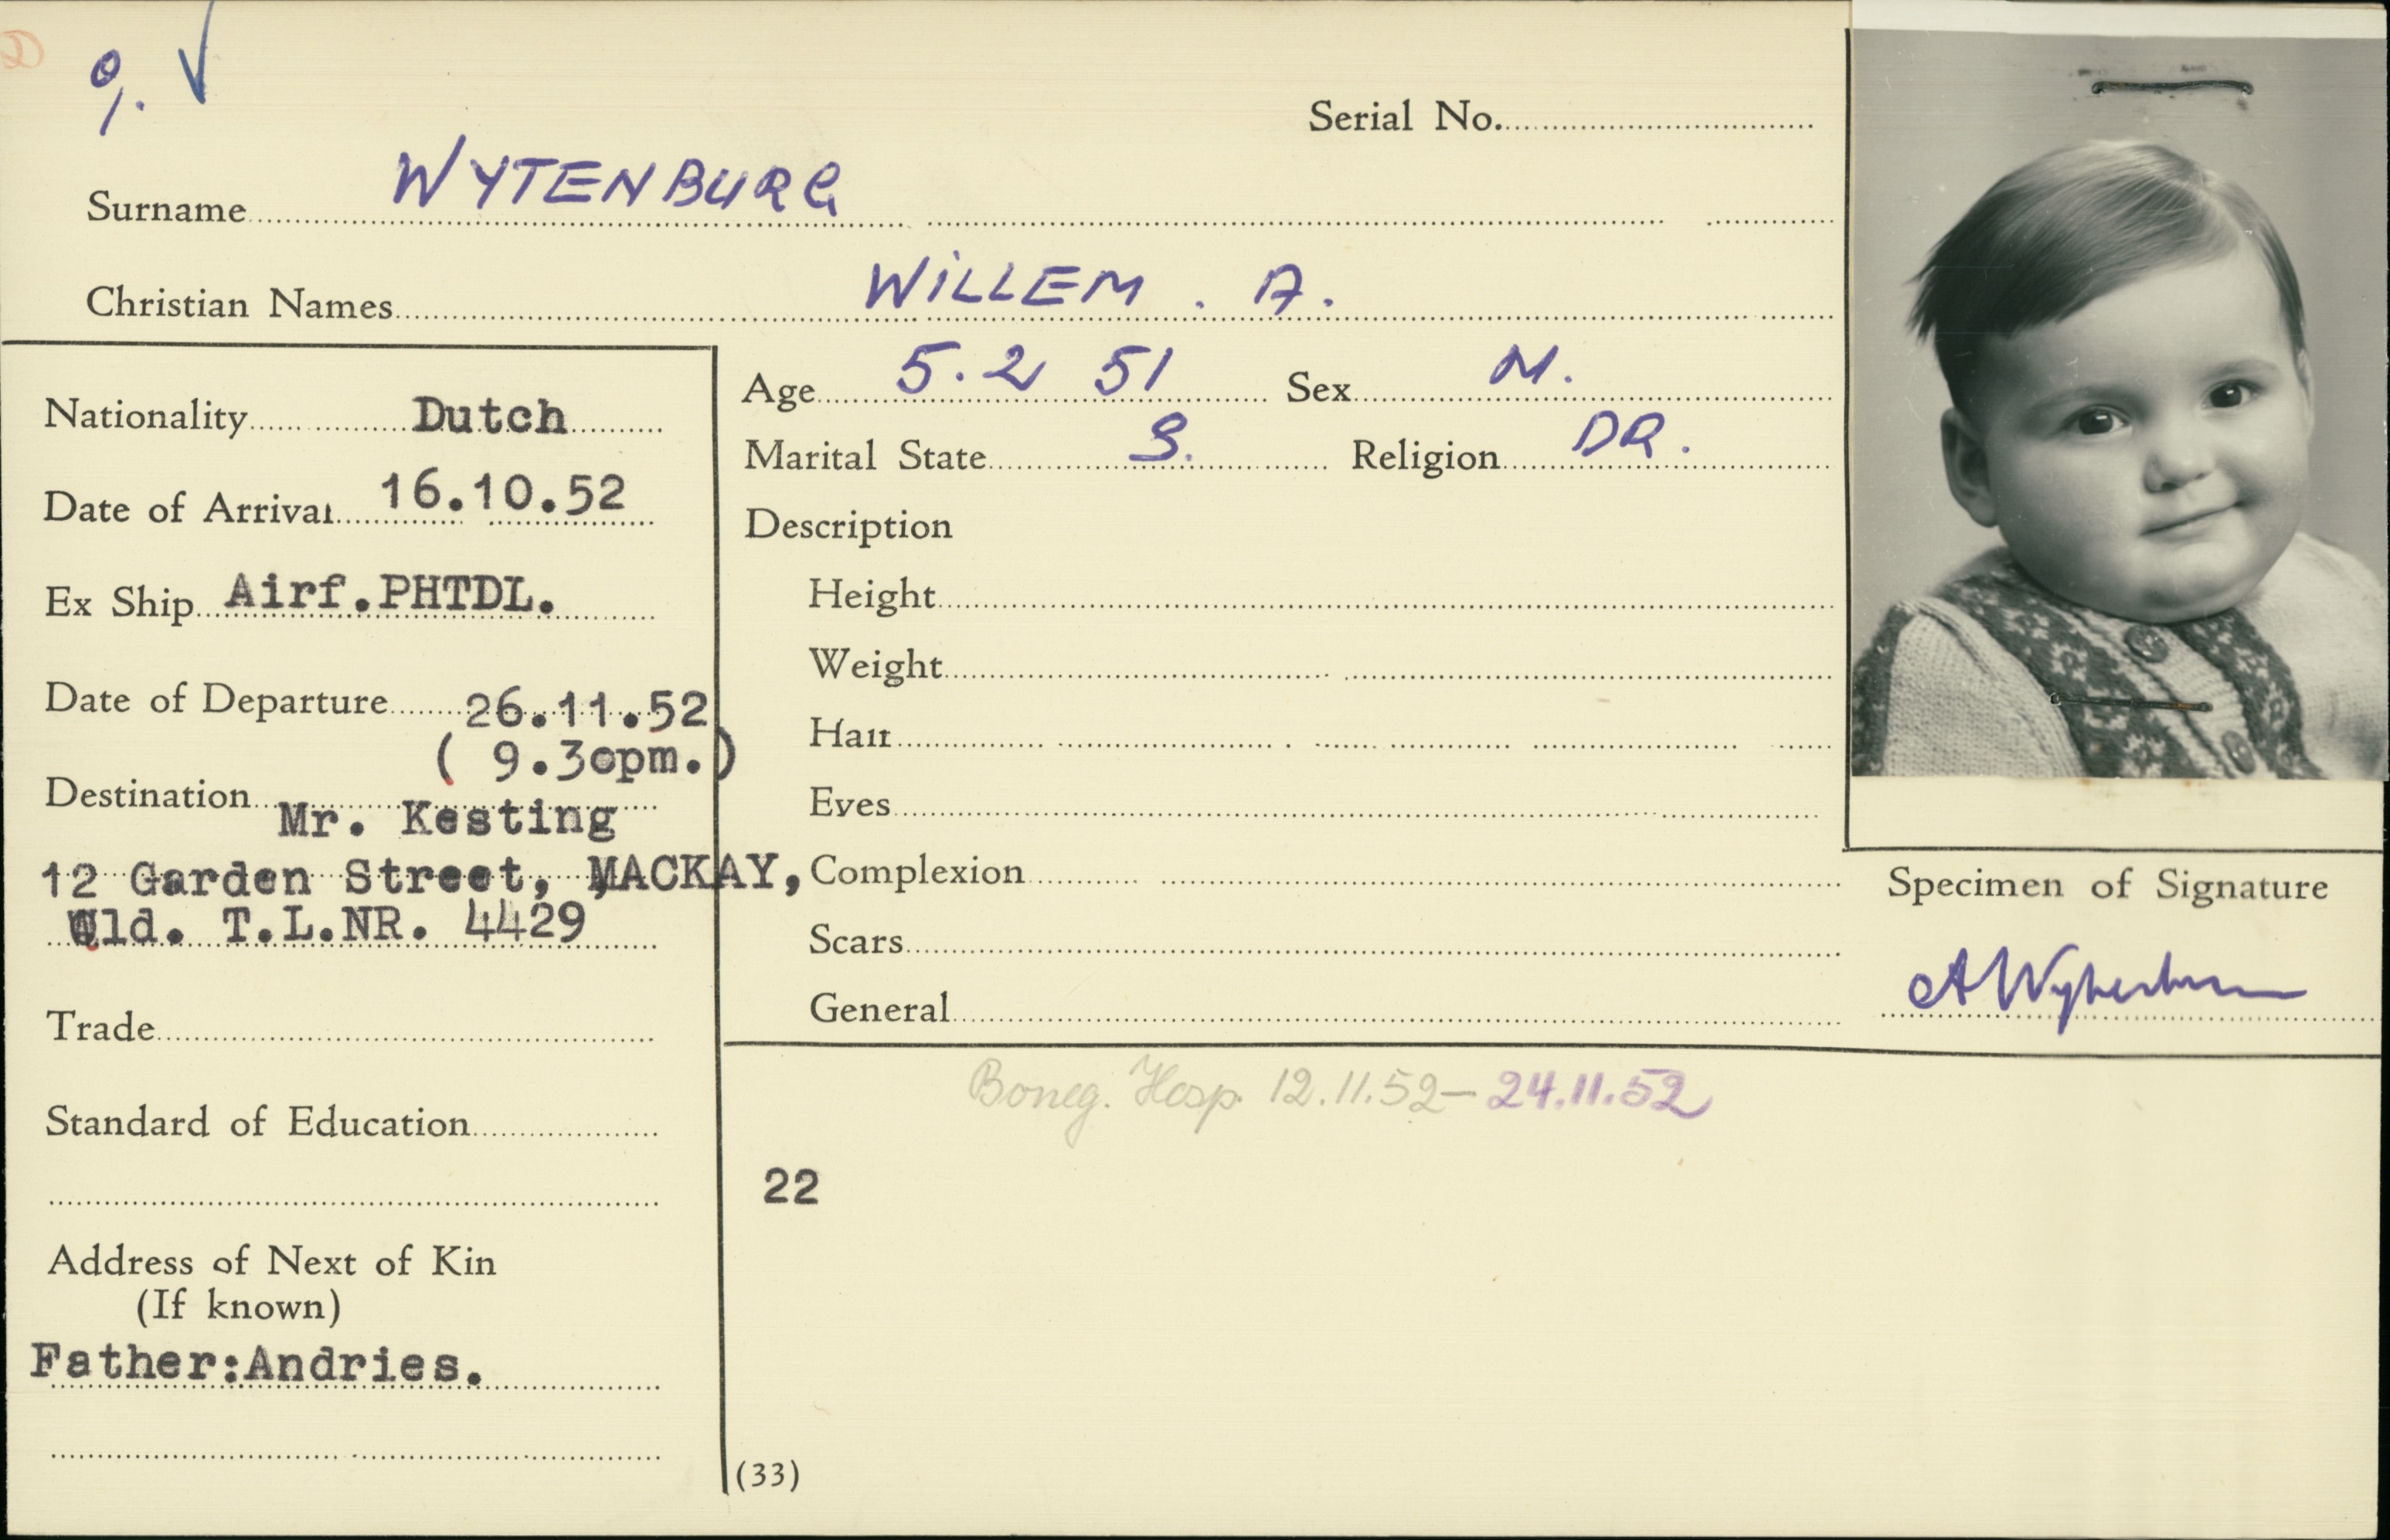 9. ✓
Serial No.
Surname WYTENBURG
Christian Names WILLEM . A.
Nationality Dutch
Date of Arrival 16.10.52
Ex Ship Airf.PHTDL.
Date of Departure 26.11.52
( 9.30pm.)
Destination
Mr. Kesting
12 Garden Street, MACKAY,
Qld. T.L.NR. 4429
Trade
Standard of Education
Address of Next of Kin
(If known)
Father:Andries.
Age 5.2 51 Sex M.
Marital State S. Religion DR.
Description
Height
Weight
Hair
Eyes
Complexion
Scars
General
Specimen of Signature
A Wytenburg
Boneg. Hosp. 12.11.52 - 24.11.52
22
(33)